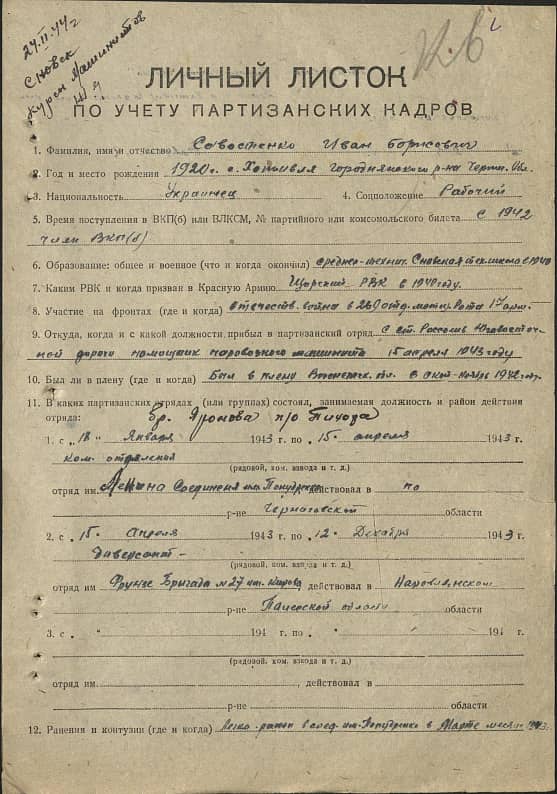 24.II.44 г
Сновск
Курсы Машинистов
К. Б
ЛИЧНЫЙ ЛИСТОК
ПО УЧЕТУ ПАРТИЗАНСКИХ КАДРОВ
1. Фамилия, имя и отчество Савостенко Иван Борисович
2. Год и место рождения 1920г. с. Хотивля Городнянского р-на Черни. Обл.
3. Национальность Украинец 4. Соцположение Рабочий
5. Время поступления в ВКП(б) или ВЛКСМ, № партийного или комсомольского билета с 1942
член ВКП(б)
6. Образование: общее и военное (что и когда окончил) Сновская тех. школа в 1940
7. Каким РВК и когда призван в Красную Армию Щорский РВК в 1940 году.
8. Участие на фронтах (где и когда) отечеств. война в отд. рота 17 арм.
9. Откуда, когда и с какой должности прибыл в партизанский отряд с ст. Юговосточ-
ной дороги помощник паровозного машиниста 15 апреля 1943 году
10. Был ли в плену (где и когда) Был в плену обл. с окт-ноябрь 1942 год.
11. В каких партизанских отрядах (или группах) состоял, занимаемая должность и район действия
отряда:
1. с „18 “ Января 1943 г. по „15. “ апреля 1943 г.
ком. отделения
(рядовой, ком. взвода и т. д.)
отряд им. Ленина Соединения им. Попудренко действовал в по
р-не Черниговской области
2. с „15. “ Апреля 1943 г. по „12 “ Декабря 1943 г.
диверсант –
(рядовой, ком. взвода и т. д.)
отряд им Фрунзе Бригада №27 им. Кирова действовал в Наровлянском
р-не Полесской области области
3. с „ “ 194 г. по „ “ 194 г.
(рядовой, ком. взвода и т. д.)
отряд им. действовал в
р-не области
12. Ранения и контузии (где и когда) Легко-ранен в соед. им. Попудренко в Марте месяце 1943.